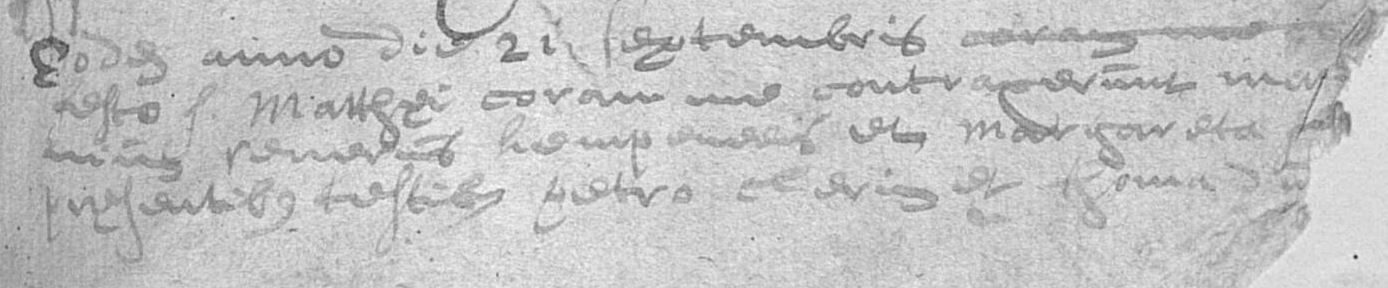 Eodem anno die 21 septembris coram me
festo s. Matthei coram me contraxerunt ma
nium Reverus hempeneers et Margareta
presentibus testibus petro clerix et thoma